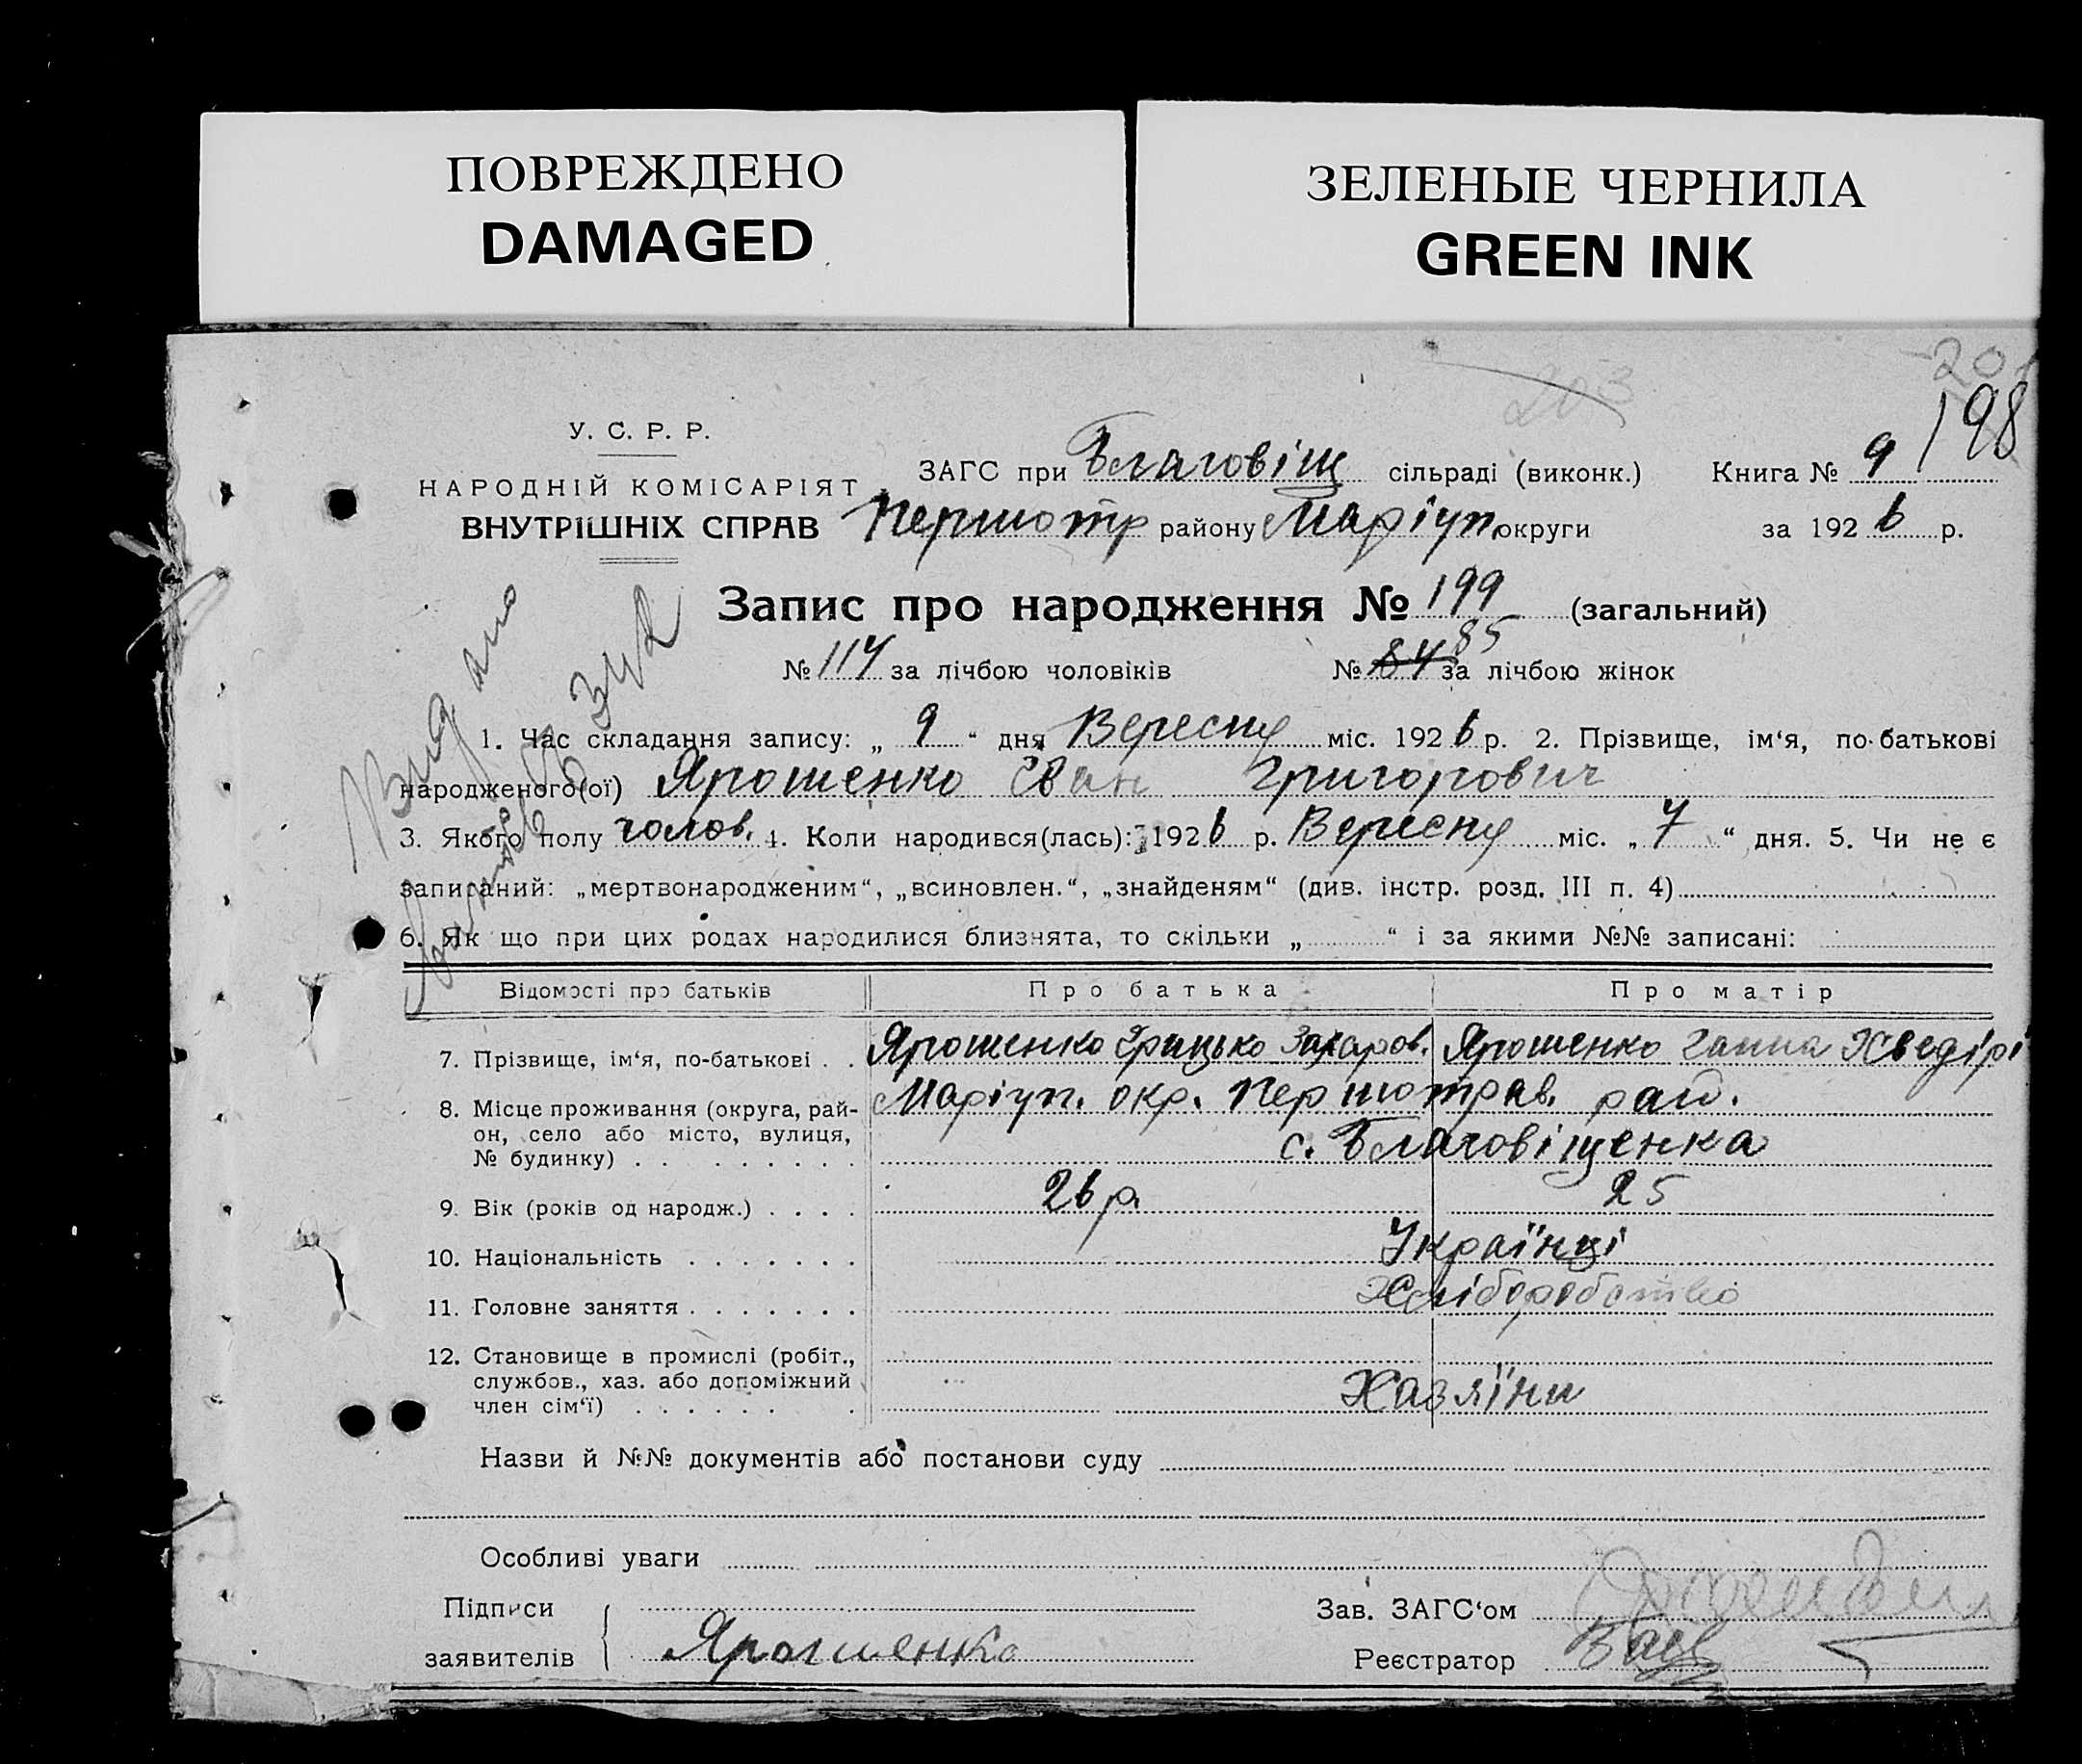 ПОВРЕЖДЕНО
DAMAGED
ЗЕЛЕНЫЕ ЧЕРНИЛА
GREEN INK
203
198
У. С. Р. Р.
НАРОДНІЙ КОМІСАРІЯТ
ВНУТРІШНІХ СПРАВ
ЗАГС при Благовіщ сільраді (виконк.) Книга № 9
Першотр району Маріуп. округи за 1926 р.
Запис про народження № 199 (загальний)
№ 114 за лічбою чоловіків № 84 85 за лічбою жінок
1. Час складання запису: „ 9 “ дня Вересну міс. 1926 р. 2. Прізвище, ім‘я, по-батькові
народженого(ої) Ярошенко Іван Григорович
3. Якого полу чолов. 4. Коли народився(лась): 1926 р. Вересну міс. „ 7 “ дня. 5. Чи не є
записаний: „мертвонародженим“, „всиновлен.“, „знайденям“ (див. інстр. розд. III п. 4)
6. Як що при цих родах народилися близнята, то скільки „ “ і за якими №№ записані:
Відомості про батьків Про батька Про матір
7. Прізвище, ім‘я, по-батькові . . Ярошенко Грицько Захаров. Ярошенко Ганна Хведірі
8. Місце проживання (округа, рай- Маріуп. окр. Першотрав. рай.
он, село або місто, вулиця, с. Благовіщенка
№ будинку) . . . . . . . . .
9. Вік (років од народж.) . . . . 26 р. 25
10. Національність . . . . . . . Українці
11. Головне заняття . . . . . . . Хліборобство
12. Становище в промислі (робіт.,
службов., хаз. або допоміжний Хазяїни
член сім‘ї) . . . . . . .
Назви й №№ документів або постанови суду
Особливі уваги
Підписи Зав. ЗАГС‘ом
заявителів Ярошенко Реєстратор